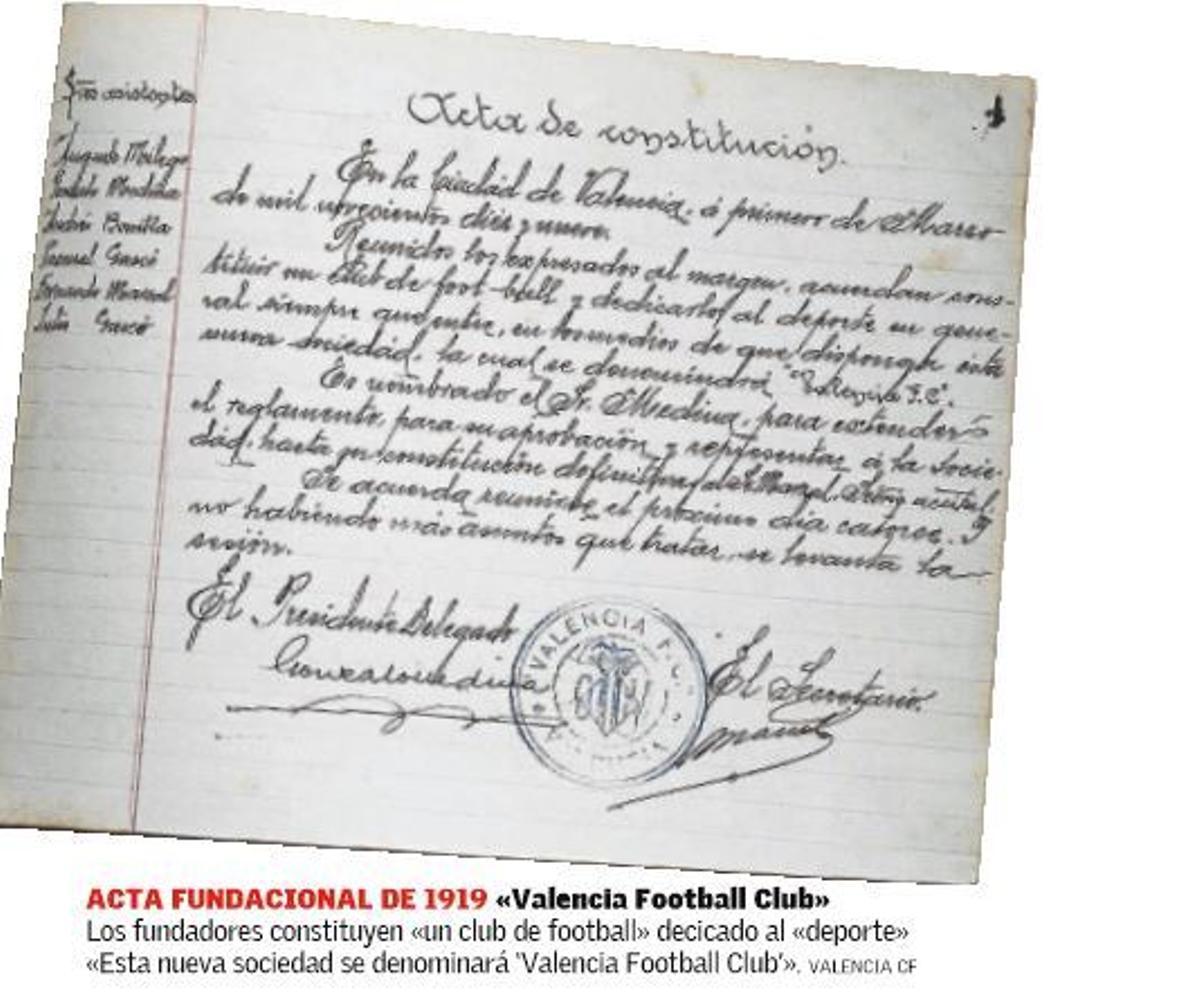 Sres asistentes
Augusto Milego
Gonzalo Medina
Andrés Bonilla
Pascual Gascó
Fernando Marzal
Julio Gascó
1
Acta de constitución.
En la Ciudad de Valencia, á primero de Marzo
de mil novecientos diez y nueve.
Reunidos los expresados al margen, acuerdan cons-
tituir un Club de foot-ball y dedicarlo al deporte en gene-
ral siempre que entre, en los medios de que disponga esta
nueva sociedad, la cual se denominará "Valencia F.C".
Es nombrado el Sr. Medina, para extender
el reglamento, para su aprobación y representar á la Socie-
dad, hasta su constitución definitiva
Se acuerda reunirse el proximo dia catorce. Y
no habiendo más asuntos que tratar, se levanta la
sesión.
El Presidente Delegado
Gonzalo Medina
VALENCIA F.C.
El Secretario.
ACTA FUNDACIONAL DE 1919 «Valencia Football Club»
Los fundadores constituyen «un club de football» decicado al «deporte»
«Esta nueva sociedad se denominará 'Valencia Football Club'». VALENCIA CF